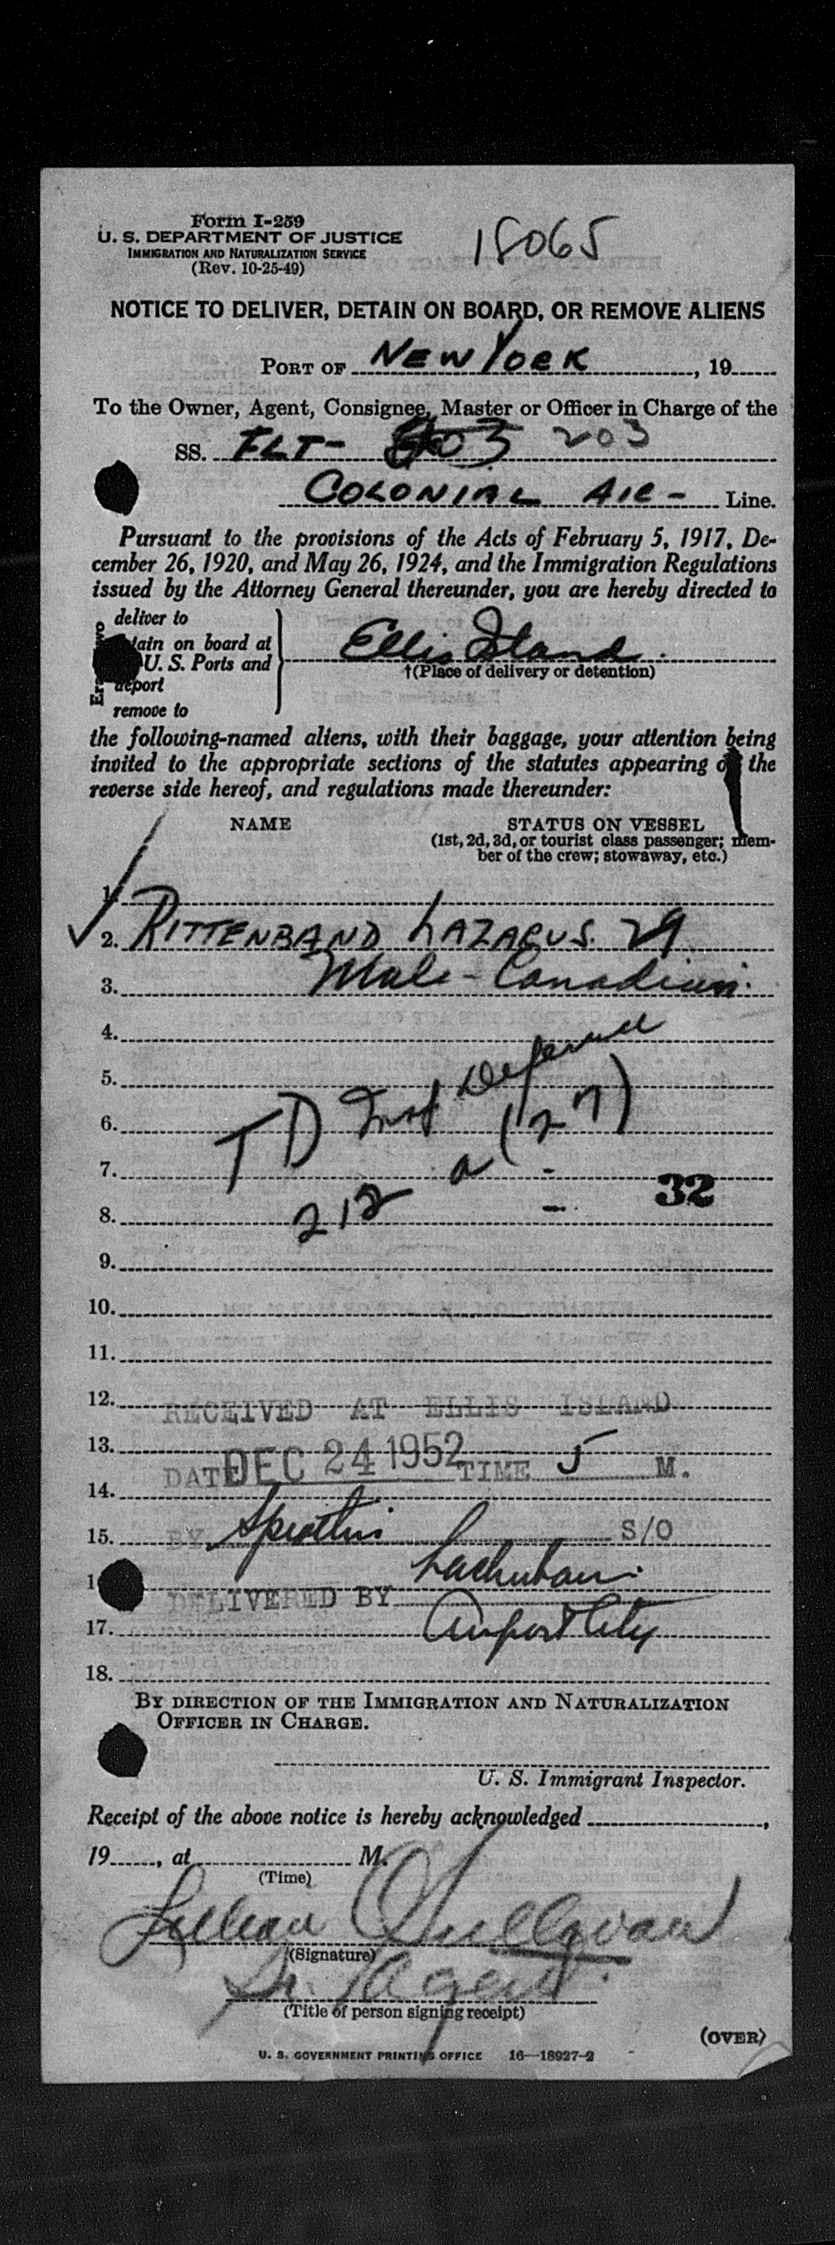 Form I-259
U. S. DEPARTMENT OF JUSTICE
IMMIGRATION AND NATURALIZATION SERVICE
(Rev. 10-25-49)
18065
NOTICE TO DELIVER, DETAIN ON BOARD, OR REMOVE ALIENS
PORT OF NEW YORK, 19
To the Owner, Agent, Consignee, Master or Officer in Charge of the
SS. FLT- 203
COLONIAL AIR- Line.
Pursuant to the provisions of the Acts of February 5, 1917, De-
cember 26, 1920, and May 26, 1924, and the Immigration Regulations
issued by the Attorney General thereunder, you are hereby directed to
deliver to
tain on board at
U. S. Ports and
deport
remove to
Ellis Island.
†(Place of delivery or detention)
the following-named aliens, with their baggage, your attention being
invited to the appropriate sections of the statutes appearing on the
reverse side hereof, and regulations made thereunder:
NAME STATUS ON VESSEL
(1st, 2d, 3d, or tourist class passenger; mem-
ber of the crew; stowaway, etc.)
1.
2. RITTENBAND LAZARUS. 29
3. Male - Canadian.
4.
5. Deferred
6. TD Insp
7. 212 a (27)
8. 32
9.
10.
11.
12. RECEIVED AT ELLIS ISLAND
13. DATE DEC 24 1952 TIME 5 M.
14.
15. BY S/O
DELIVERED BY
17. Airport City
18.
BY DIRECTION OF THE IMMIGRATION AND NATURALIZATION
OFFICER IN CHARGE.
U. S. Immigrant Inspector.
Receipt of the above notice is hereby acknowledged,
19, at M.
(Time)
Lillian O'Sullivan
(Signature)
Sr. Agent.
(Title of person signing receipt)
(OVER)
U. S. GOVERNMENT PRINTING OFFICE 16—18927-2